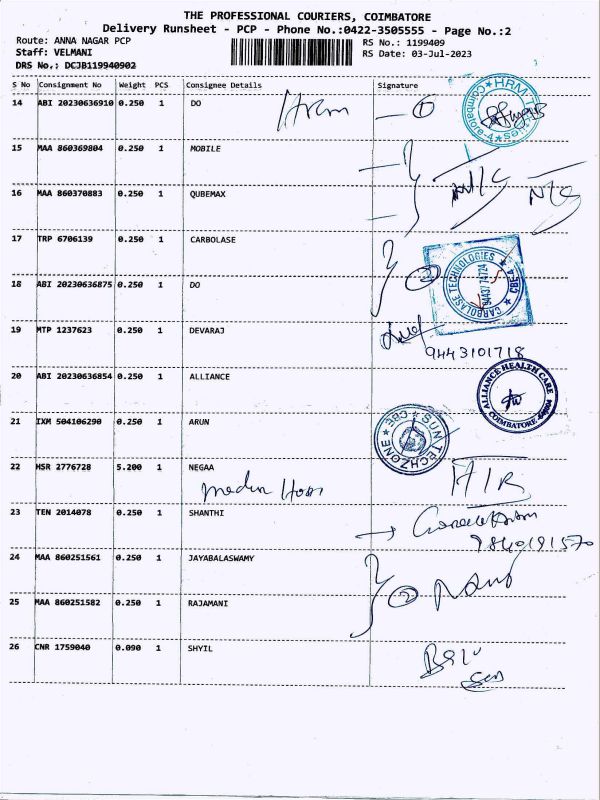 THE PROFESSIONAL COURIERS, COIMBATORE
Delivery Runsheet - PCP - Phone No.:0422-3505555 - Page No.:2
Route: ANNA NAGAR PCP RS No.: 1199409
Staff: VELMANI RS Date: 03-Jul-2023
DRS No.: DCJB119940902
S No Consignment No Weight PCS Consignee Details Signature
14 ABI 20230636910 0.250 1 DO
HRM
Coimbatore-4
15 MAA 860369804 0.250 1 MOBILE
16 MAA 860370883 0.250 1 QUBEMAX
N/S
17 TRP 6706139 0.250 1 CARBOLASE
18 ABI 20230636875 0.250 1 DO
2
CARBOLASE TECHNOLOGIES
CBE-4
19 MTP 1237623 0.250 1 DEVARAJ
9443101718
20 ABI 20230636854 0.250 1 ALLIANCE
ALLIANCE HEALTH CARE
COIMBATORE
21 IXM 504106290 0.250 1 ARUN
NUS TECHZONE ★ CBE ★
22 HSR 2776728 5.200 1 NEGAA
23 TEN 2014078 0.250 1 SHANTHI
9840191570
24 MAA 860251561 0.250 1 JAYABALASWAMY
2
25 MAA 860251582 0.250 1 RAJAMANI
26 CNR 1759040 0.090 1 SHYIL